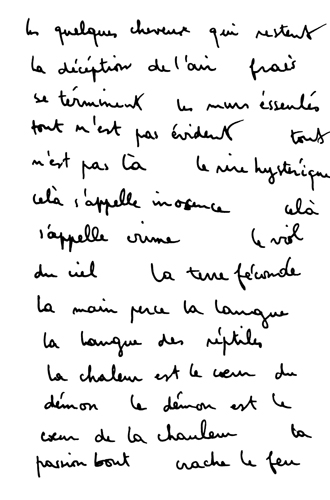 les quelques cheveux qui restent
la décéption de l'air frais
se términent les murs éssentés
tout n'est pas évident tout
n'est pas là le rire hystérique
celà s'appelle inosence celà
s'appelle crime le viol
du ciel la terre féconde
la main perce la langue
la langue des réptiles
la chaleur est le cœur du
démon le démon est le
cœur de la chauleur la
passion bout crache le feu